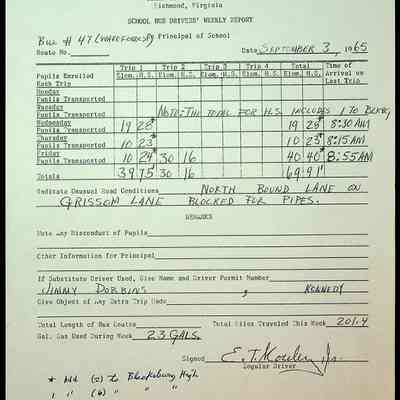 Richmond, Virginia
SCHOOL BUS DRIVERS' WEEKLY REPORT
Bus # 47 Principal of School
Route No. Date SEPTEMBER 3, 1965
Trip 1 Trip 2 Trip 3 Trip 4 Total Time of
Pupils Enrolled Elem. H.S. Elem. H.S. Elem. H.S. Elem. H.S. Elem. H.S. Arrival on
Each Trip Last Trip
Monday
Pupils Transported
Tuesday NOTE: THE TOTAL FOR H.S. INCLUDES 1 TO
Pupils Transported
Wednesday
Pupils Transported 19 28* 19 25* 8:30 AM
Thursday
Pupils Transported 10 23* 10 23* 8:15 AM
Friday
Pupils Transported 10 24* 30 16 40 40* 8:55 AM
Totals 39 75 30 16 69 91
Indicate Unusual Road Conditions NORTH BOUND LANE ON
GRISSOM LANE BLOCKED FOR PIPES.
REMARKS
Note Any Misconduct of Pupils
Other Information for Principal
If Substitute Driver Used, Give Name and Driver Permit Number
JIMMY DOBBINS, KENNEDY
Give Object of Any Extra Trip Made
Total Length of Bus Routes Total Miles Traveled This Week 201.4
Gal. Gas Used During Week 23 GALS.
Signed E. T. Jr.
Regular Driver
* Add (2) to Blacksburg High
1 " (6) " " "